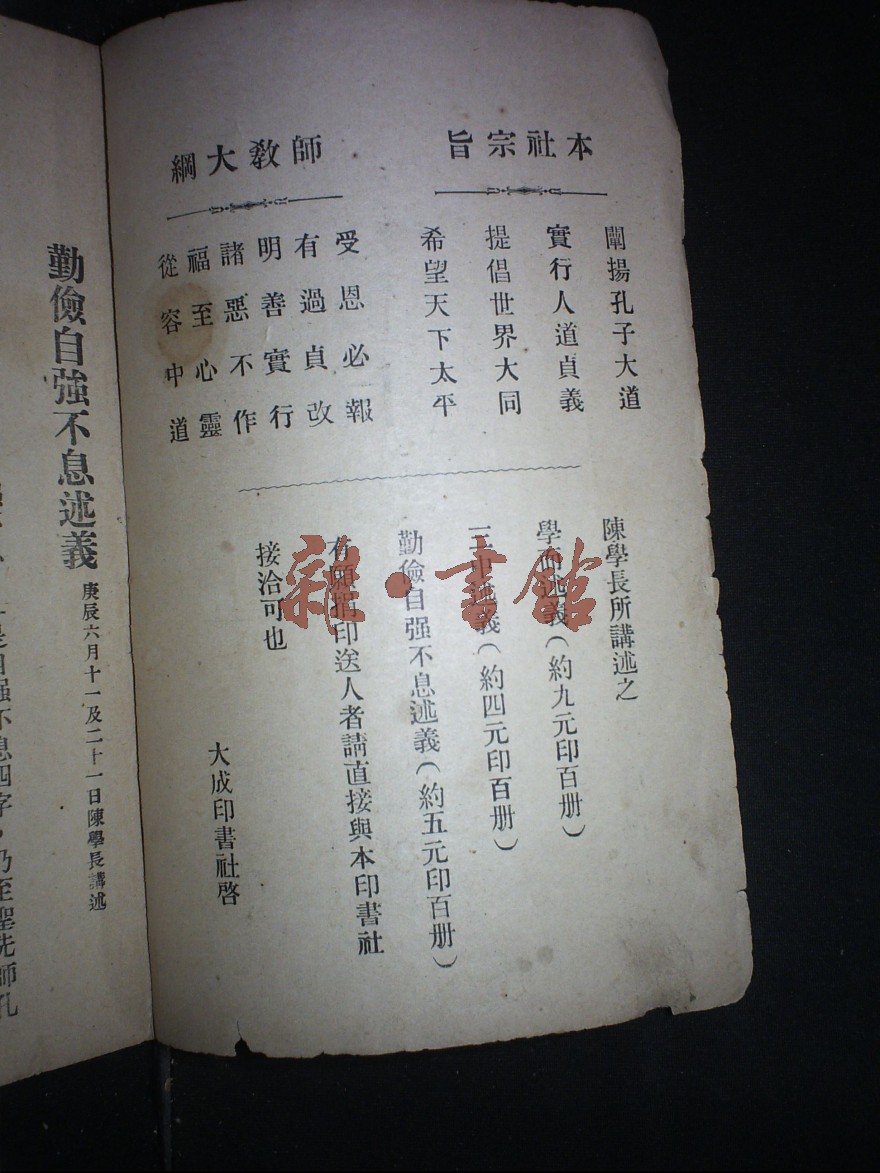 本社宗旨
闡揚孔子大道
實行人道貞義
提倡世界大同
希望天下太平
師教大綱
受恩必報
有過貞改
明善實行
諸惡不作
福至心靈
從容中道
陳學長所講述之
學而述義(約九元印百册)
述義(約四元印百册)
勤儉自强不息述義(約五元印百册)
有願捐印送人者請直接與本印書社
接洽可也
大成印書社啓
勤儉自强不息述義
庚辰六月十一及二十一日陳學長講述
是自强不息四字，乃至聖先師孔
雜·書館